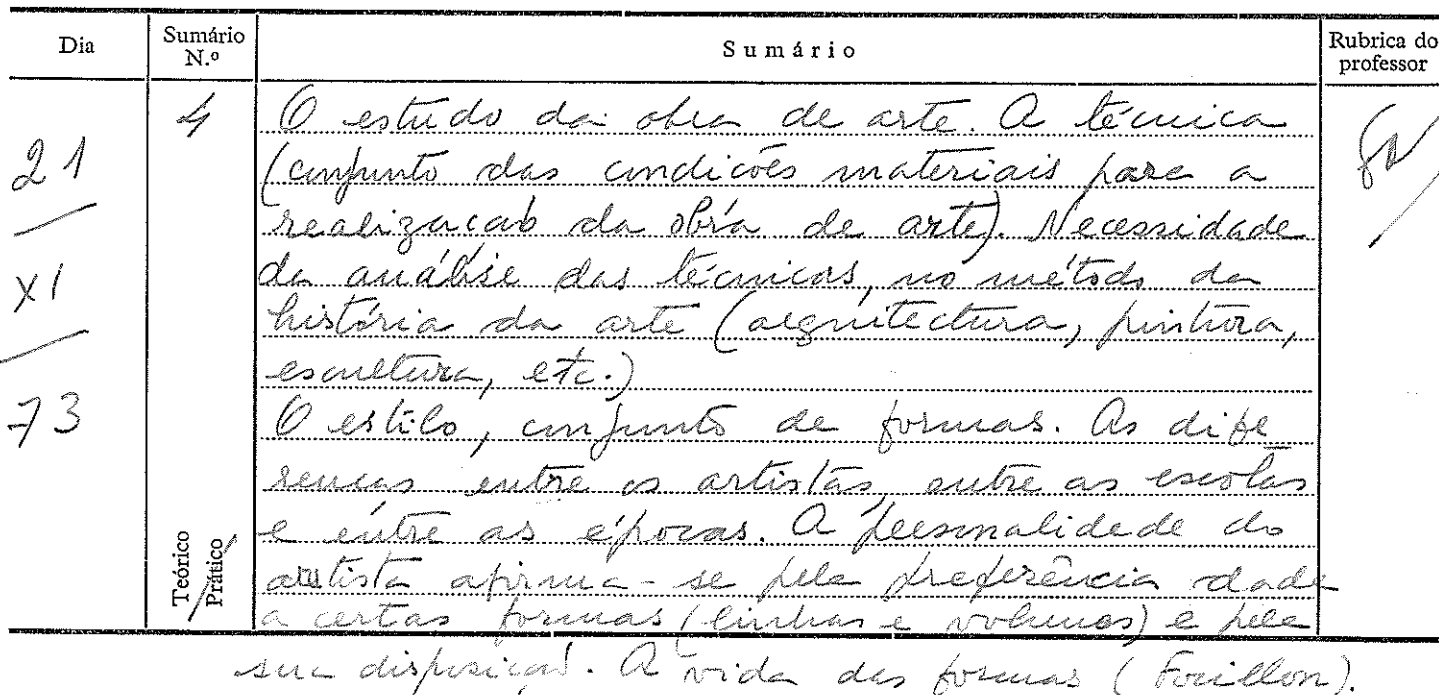 Dia
Sumário N.º
Sumário
Rubrica do professor
21
XI
73
4
O estudo da obra de arte. A técnica
(conjunto das condições materiais para a
realização da obra de arte). Necessidade
da análise das técnicas, no método da
história da arte (arquitectura, pintura,
escultura, etc.)
O estilo, conjunto de formas. As dife
renças entre os artistas, entre as escolas
e entre as épocas. A personalidade do
artista afirma-se pela preferência dada
a certas formas (linhas e volumes) e pela
sua disposição. A vida das formas (Focillon).
Teórico
Prático